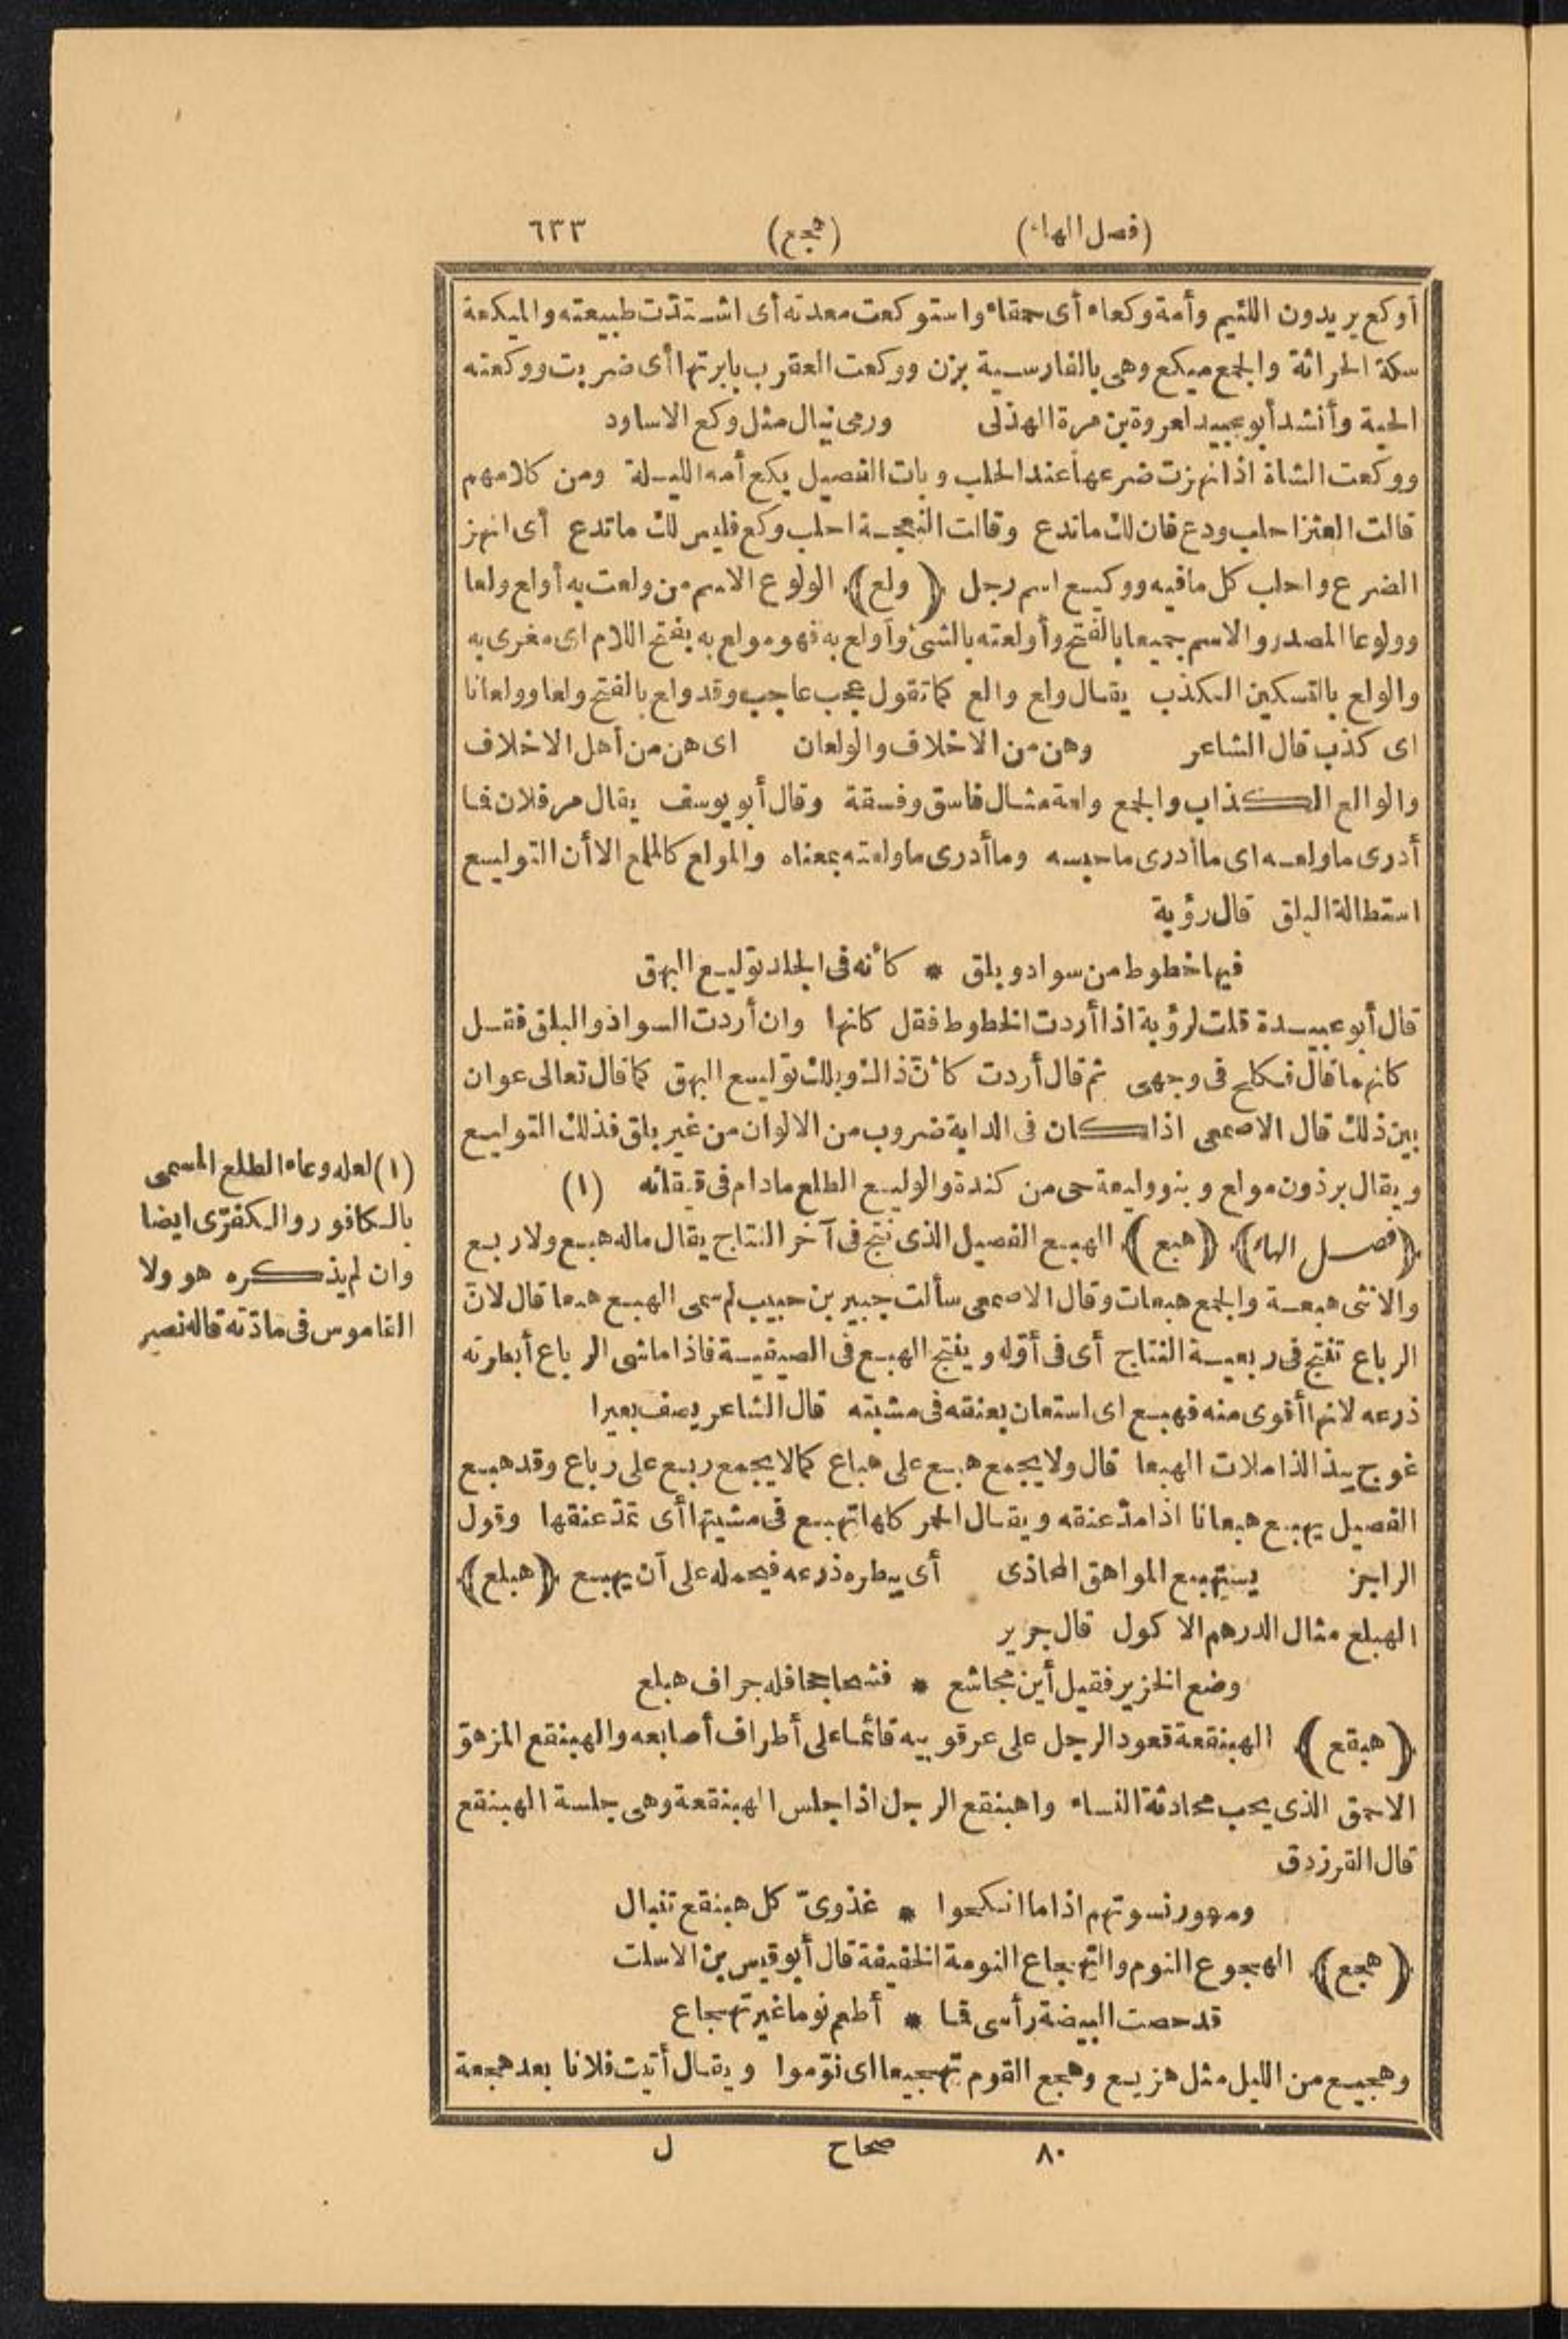 (فصل الهاء) (هجع) ٦٣٣
أوكع يريدون اللئيم وأمة وكعاء أى حمقاء واستوكعت معدته أى اشتدّت طبيعته والميكعة
سكة الحراثة والجمع ميكع وهى بالفارسية بزن ووكعت العقرب بابرتها أى ضربت ووكعته
الحية وأنشد أبو عبيد لعروة بن مرة الهذلى ورمى نبال مثل وكع الاساود
ووكعت الشاة اذا نهزت ضرعها عند الحلب وبات الفصيل يكع أمه الليلة ومن كلامهم
قالت العنز احلب ودع فان لك ما تدع وقالت النعجة احلب وكع فليس لك ما تدع أى انهز
الضرع واحلب كل ما فيه ووكيع اسم رجل ﴿ولع﴾ الولوع الاسم من ولعت به أولع ولعا
وولوعا المصدر والاسم جميعا بالفتح وأولعته بالشئ وأولع به فهو مولع به بفتح اللام اى مغرى به
والولع بالتسكين الكذب يقال ولع والع كما تقول عجب عاجب وقد ولع بالفتح ولعا وولعانا
اى كذب قال الشاعر وهن من الاخلاف والولعان اى هن من أهل الاخلاف
والوالع الكذاب والجمع ولعة مثال فاسق وفسقة وقال أبو يوسف يقال مر فلان فما
أدرى ما ولعه اى ما أدرى ما حبسه وما أدرى ما ولعته بمعناه والمولع كالملمع الا أن التوليع
استطالة البلق قال رؤبة
فيها خطوط من سواد وبلق * كأنه فى الجلد توليع البهق
قال أبو عبيدة قلت لرؤبة اذا أردت الخطوط فقل كانها وان أردت السواد والبلق فقل
كانهما قال فكلح فى وجهى ثم قال أردت كأنّ ذاك ويلك توليع البهق كما قال تعالى عوان
بين ذلك قال الاصمعى اذا كان فى الدابة ضروب من الالوان من غير بلق فذلك التوليع
ويقال برذون مولع وبنو وليعة حى من كندة والوليع الطلع مادام فى قيقائه (١)
﴿فصل الهاء﴾ ﴿هبع﴾ الهبع الفصيل الذى نتج فى آخر النتاج يقال ماله هبع ولا ربع
والانثى هبعة والجمع هبعات وقال الاصمعى سألت جبير بن حبيب لم سمى الهبع هبعا قال لانّ
الرباع تنتج فى ربعية النتاج أى فى أوّله وينتج الهبع فى الصيفية فاذا ماشى الرباع أبطرته
ذرعه لانها أقوى منه فهبع اى استعان بعنقه فى مشيته قال الشاعر يصف بعيرا
غوج يبذ الذاملات الهبعا قال ولا يجمع هبع على هباع كما لا يجمع ربع على رباع وقد هبع
الفصيل يهبع هبعانا اذا مدّ عنقه ويقال الحمر كلها تهبع فى مشيتها أى تمدّ عنقها وقول
الراجز يستهبع المواهق المحاذى أى يبطره ذرعه فيحمله على أن يهبع ﴿هبلع﴾
الهبلع مثال الدرهم الاكول قال جرير
وضع الخزير فقيل أين مجاشع * فشحا جحافله جراف هبلع
﴿هبقع﴾ الهبنقعة قعود الرجل على عرقوبيه قائما على أطراف أصابعه والهبنقع المزهوّ
الاحمق الذى يحب محادثة النساء واهبنقع الرجل اذا جلس الهبنقعة وهى جلسة الهبنقع
قال الفرزدق
ومهور نسوتهم اذا ما انكحوا * غذوىّ كل هبنقع تنبال
﴿هجع﴾ الهجوع النوم والتهجاع النومة الخفيفة قال أبو قيس بن الاسلت
قد حصت البيضة رأسى فما * أطعم نوما غير تهجاع
وهجيع من الليل مثل هزيع وهجع القوم تهجيعا اى نوّموا ويقال أتيت فلانا بعد هجعة
٨٠ صحاح ل
(١) لعله وعاء الطلع المسمى
بالكافور والكفرّى ايضا
وان لم يذكره هو ولا
القاموس فى مادّته قاله نصر